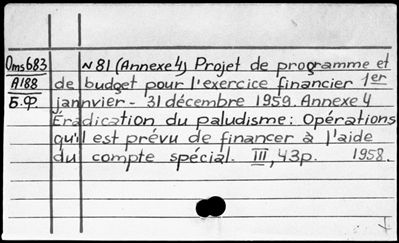 Oms683
A188
Б.Ф
N 81 (Annexe 4) Projet de programme et
de budget pour l'exercice financier 1er
jannvier - 31 décembre 1959. Annexe 4
Éradication du paludisme: Opérations
qu'il est prévu de financer à l'aide
du compte spécial. III, 43p. 1958.